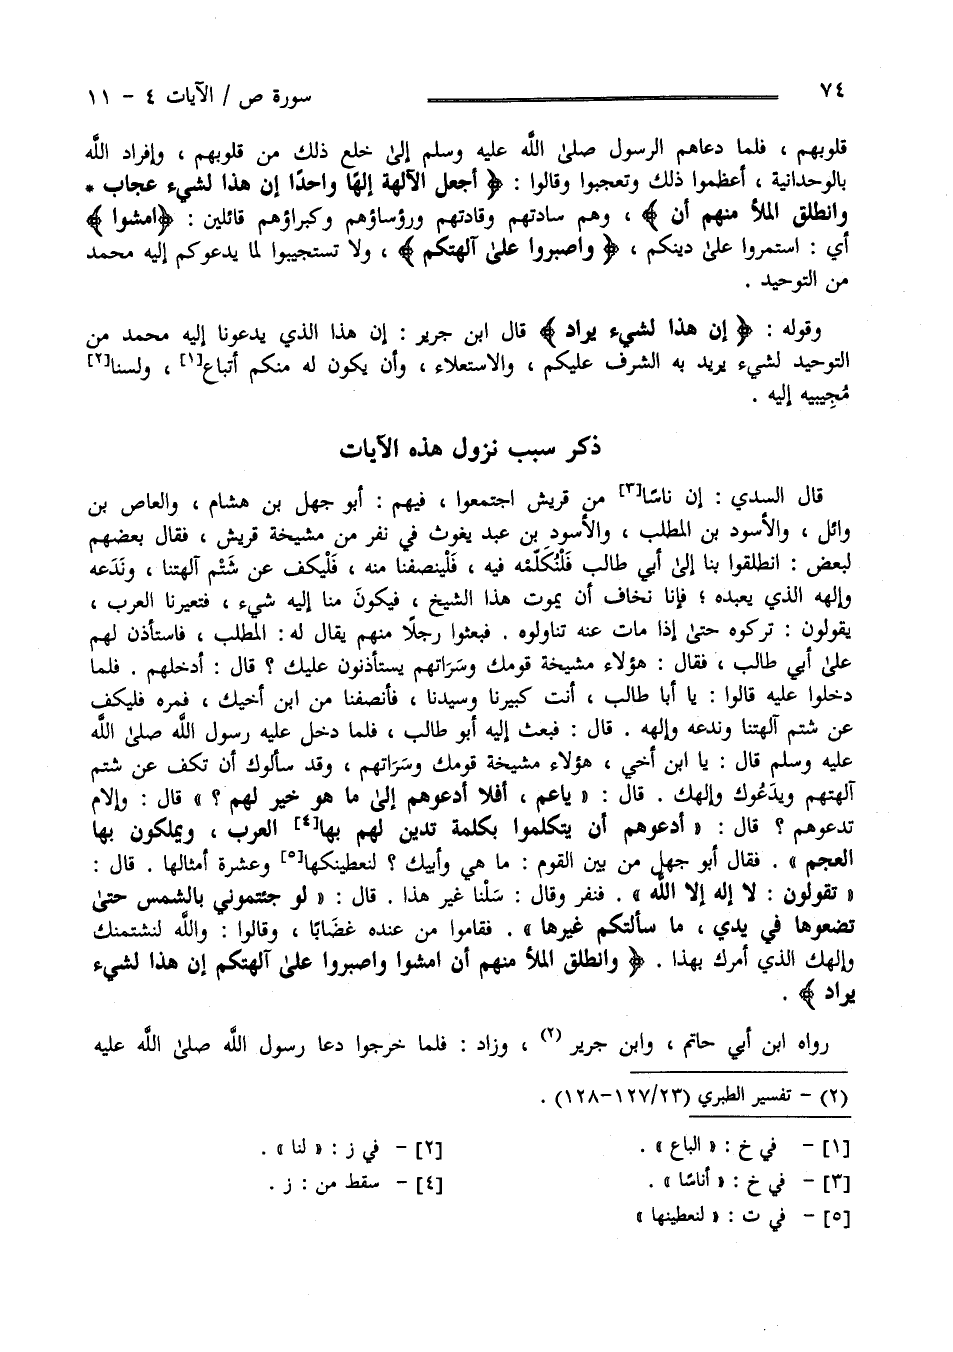 ٧٤ سورة ص / الآيات ٤ - ١١
قلوبهم ، فلما دعاهم الرسول صلى الله عليه وسلم إلى خلع ذلك من قلوبهم ، وإفراد الله
بالوحدانية ، أعظموا ذلك وتعجبوا وقالوا : ﴿ أجعل الآلهة إلهًا واحدًا إن هذا لشيء عجاب *
وانطلق الملأ منهم أن ﴾ ، وهم سادتهم وقادتهم ورؤساؤهم وكبراؤهم قائلين : ﴿امشوا ﴾
أي : استمروا على دينكم ، ﴿ واصبروا على آلهتكم ﴾ ، ولا تستجيبوا لما يدعوكم إليه محمد
من التوحيد .
وقوله : ﴿ إن هذا لشيء يراد ﴾ قال ابن جرير : إن هذا الذي يدعونا إليه محمد من
التوحيد لشيء يريد به الشرف عليكم ، والاستعلاء ، وأن يكون له منكم أتباع[١] ، ولسنا[٢]
مُجِيبيه إليه .
ذكر سبب نزول هذه الآيات
قال السدي : إن ناسًا[٣] من قريش اجتمعوا ، فيهم : أبو جهل بن هشام ، والعاص بن
وائل ، والأسود بن المطلب ، والأسود بن عبد يغوث في نفر من مشيخة قريش ، فقال بعضهم
لبعض : انطلقوا بنا إلى أبي طالب فَلْنُكَلّمْه فيه ، فَلْينصفنا منه ، فَلْيكف عن شَتْم آلهتنا ، ونَدَعه
وإلهه الذي يعبده ؛ فإنا نخاف أن يموت هذا الشيخ ، فيكونَ منا إليه شيء ، فتعيرنا العرب ،
يقولون : تركوه حتى إذا مات عنه تناولوه . فبعثوا رجلًا منهم يقال له : المطلب ، فاستأذن لهم
على أبي طالب ، فقال : هؤلاء مشيخة قومك وسَرَاتهم يستأذنون عليك ؟ قال : أدخلهم . فلما
دخلوا عليه قالوا : يا أبا طالب ، أنت كبيرنا وسيدنا ، فأنصفنا من ابن أخيك ، فمره فليكف
عن شتم آلهتنا وندعه وإلهه . قال : فبعث إليه أبو طالب ، فلما دخل عليه رسول الله صلى الله
عليه وسلم قال : يا ابن أخي ، هؤلاء مشيخة قومك وسَرَاتهم ، وقد سألوك أن تكف عن شتم
آلهتهم ويدَعُوك وإلهك . قال : « ياعم ، أفلا أدعوهم إلى ما هو خير لهم ؟ » قال : وإلام
تدعوهم ؟ قال : « أدعوهم أن يتكلموا بكلمة تدين لهم بها[٤] العرب ، ويملكون بها
العجم » . فقال أبو جهل من بين القوم : ما هي وأبيك ؟ لنعطينكها[٥] وعشرة أمثالها . قال :
« تقولون : لا إله إلا الله » . فنفر وقال : سَلْنا غير هذا . قال : « لو جئتموني بالشمس حتى
تضعوها في يدي ، ما سألتكم غيرها » . فقاموا من عنده غضَابًا ، وقالوا : والله لنشتمنك
وإلهك الذي أمرك بهذا . ﴿ وانطلق الملأ منهم أن امشوا واصبروا على آلهتكم إن هذا لشيء
يراد ﴾ .
رواه ابن أبي حاتم ، وابن جرير (٢) ، وزاد : فلما خرجوا دعا رسول الله صلى الله عليه
(٢) - تفسير الطبري (١٢٧/٢٣-١٢٨) .
[١] - في خ : « الباع » . [٢] - في ز : « لنا » .
[٣] - في خ : « أناسًا » . [٤] - سقط من : ز .
[٥] - في ت : « لنعطينها »